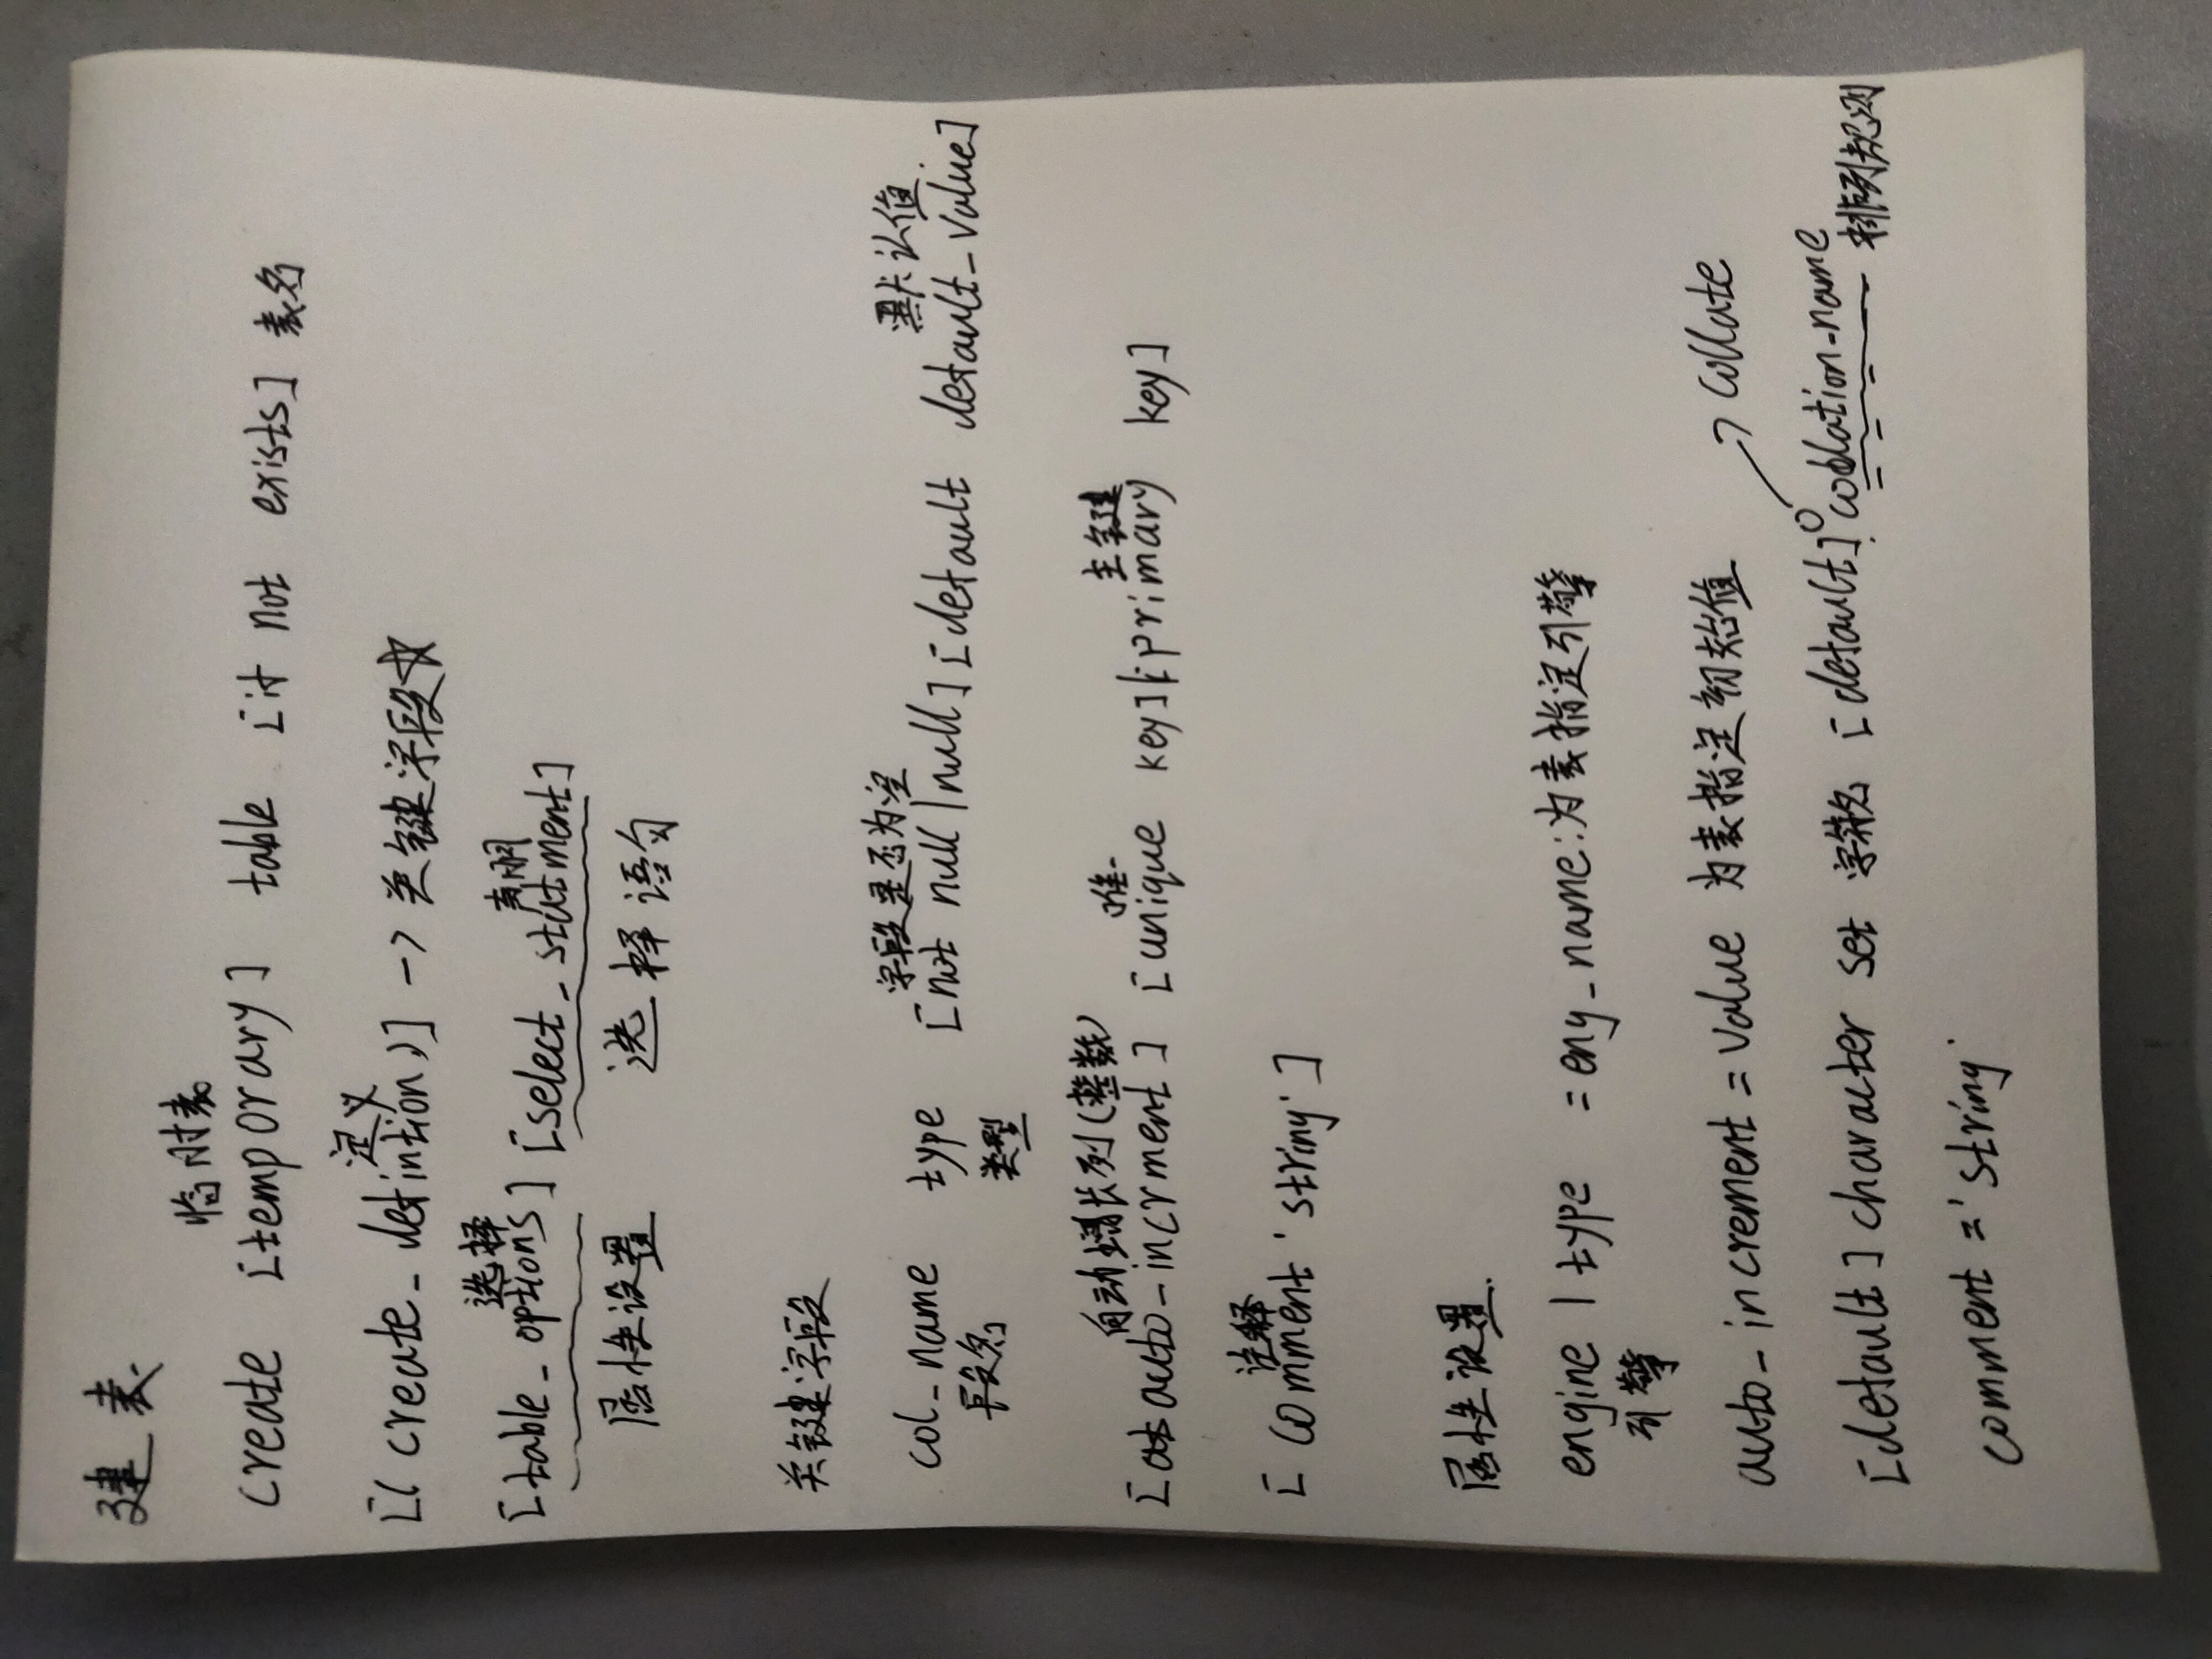 建表.
临时表
create [temporary] table [it not exists] 表名
定义
[( create_detinition,)] -> 关键字段
选择 声明
[table_options] [select_statment]
属性设置 选择语句
关键字段
字段是否为空 默认值
col_name type [not null | null] [detault detault_value]
段名 类型
自动增长列(整数) 唯一 主键
[auto_incrment] [unique key] [primary key]
注释
[ comment 'string' ]
属性设置.
engine | type = eny_name:为表指定引擎
引擎
auto_increment = value 为表指定初始值
collate
[detault] character set 字符 [detault] collation-name
排列规则
comment = 'string'